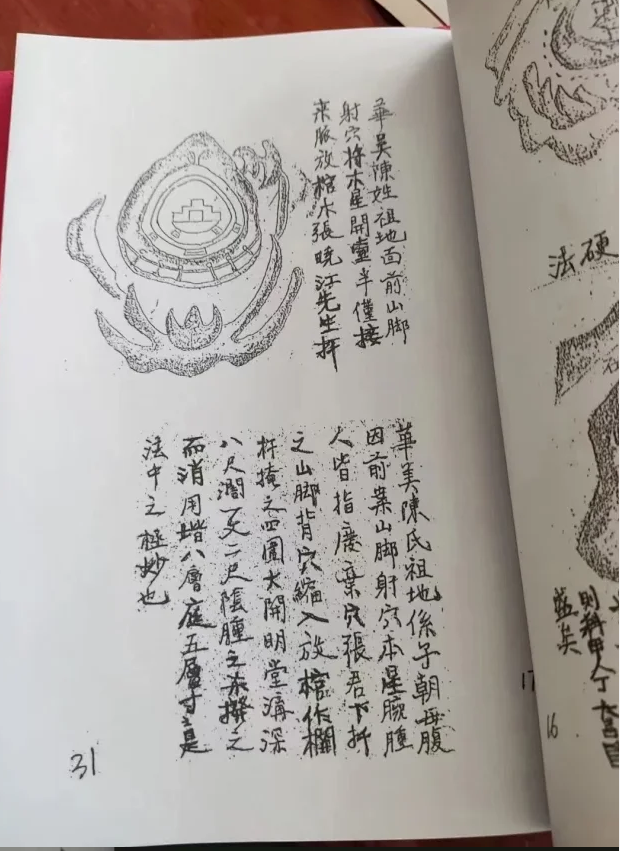 華美陳姓祖地面前山脚
射穴将木星開壙半僅接
來脈放棺木張曉江先生扦
華美陳氏祖地係子朝母腹
因前案山脚射穴本星腕腫
人皆指廢棄穴張君下扦
之山脚背穴縮入放棺作欄
杆掩之四圍大開明堂溝深
八尺濶一丈二尺陰腫之來撥之
而消用堦八層庭五層寸之是
法中之極妙也
31
硬
法
則科甲人丁大富
益矣
16
17